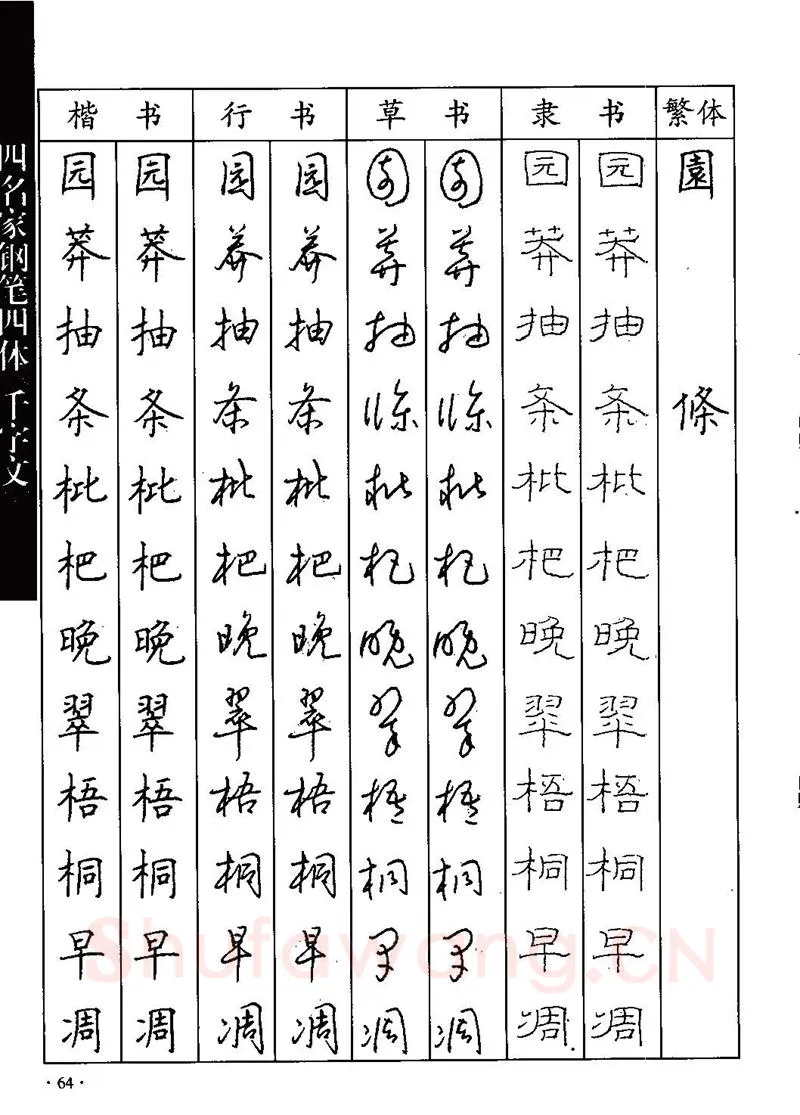 四名家钢笔四体 千字文
楷书 行书 草书 隶书 繁体
园 园 园 园 园 园 园 园 園
莽 莽 莽 莽 莽 莽 莽 莽
抽 抽 抽 抽 抽 抽 抽 抽
条 条 条 条 條 條 条 条 條
枇 枇 枇 枇 枇 枇 枇 枇
杷 杷 杷 杷 杷 杷 杷 杷
晚 晚 晚 晚 晚 晚 晚 晚
翠 翠 翠 翠 翠 翠 翠 翠
梧 梧 梧 梧 梧 梧 梧 梧
桐 桐 桐 桐 桐 桐 桐 桐
早 早 早 早 早 早 早 早
凋 凋 凋 凋 凋 凋 凋 凋
Shufawang.CN
·64·